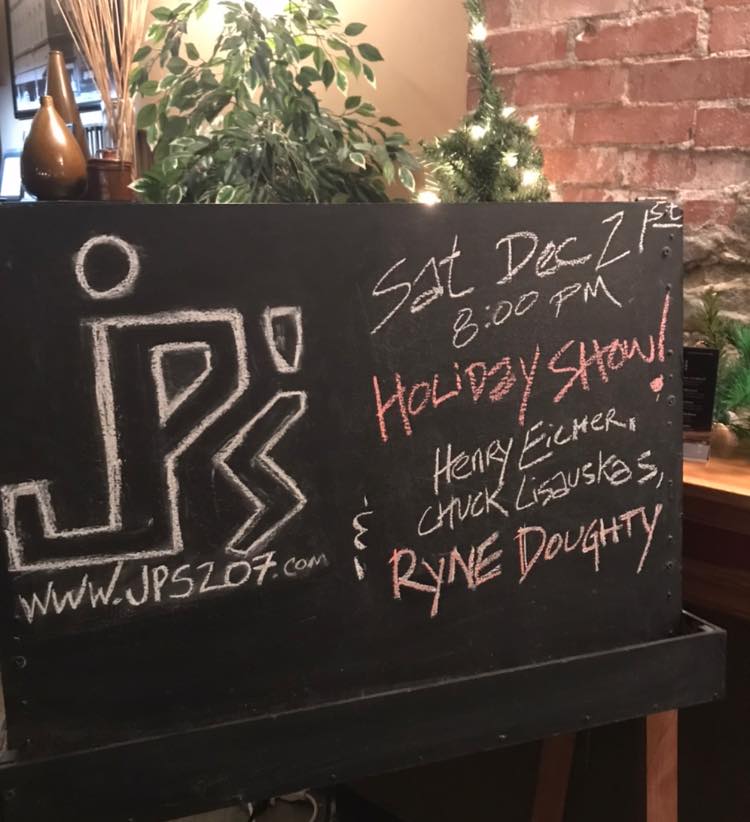 JP's
www.JPS207.com
Sat Dec 21st
8:00 PM
Holiday Show!
Henry Eicher,
Chuck Lisauskas,
& Ryne Doughty